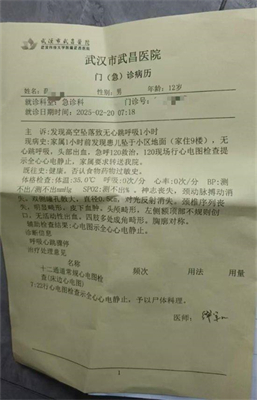 武汉市武昌医院
武汉市武昌医院
门（急）诊病历
姓名： 性别：男 年龄：12岁
就诊科室：急诊科 门诊号：
就诊日期时间：2025-02-20 07:18
主诉：发现高空坠落致无心跳呼吸1小时
现病史：家属1小时前发现患儿坠于小区地面（家住9楼），无
心跳呼吸，头部出血，急呼120救治，120现场行心电图检查提
示全心心电静止，家属要求转送我院。
既往史：健康，否认食物药物过敏史。
体格检查：体温：38.0℃ 呼吸：0次/分 心率：0次/分 BP：测
不出/测不出mmHg SPO2：测不出%，神志丧失，颈动脉搏动消
失，双侧瞳孔散大，直径0.5cm，对光反射消失，颈椎序列丧
失，明显畸形，皮下血肿，头颅畸形，左侧额顶部不规则创
口，无活动性出血，四肢多处成角畸形，胸廓对称。
辅助检查结果：心电图示全心心电静止。
诊断信息
呼吸心跳骤停
治疗处理意见
名称 频次 用法 用量
十二通道常规心电图检
查(床边心电图)
心电图检查示全心心电静止，予以尸体料理。
医师：
1